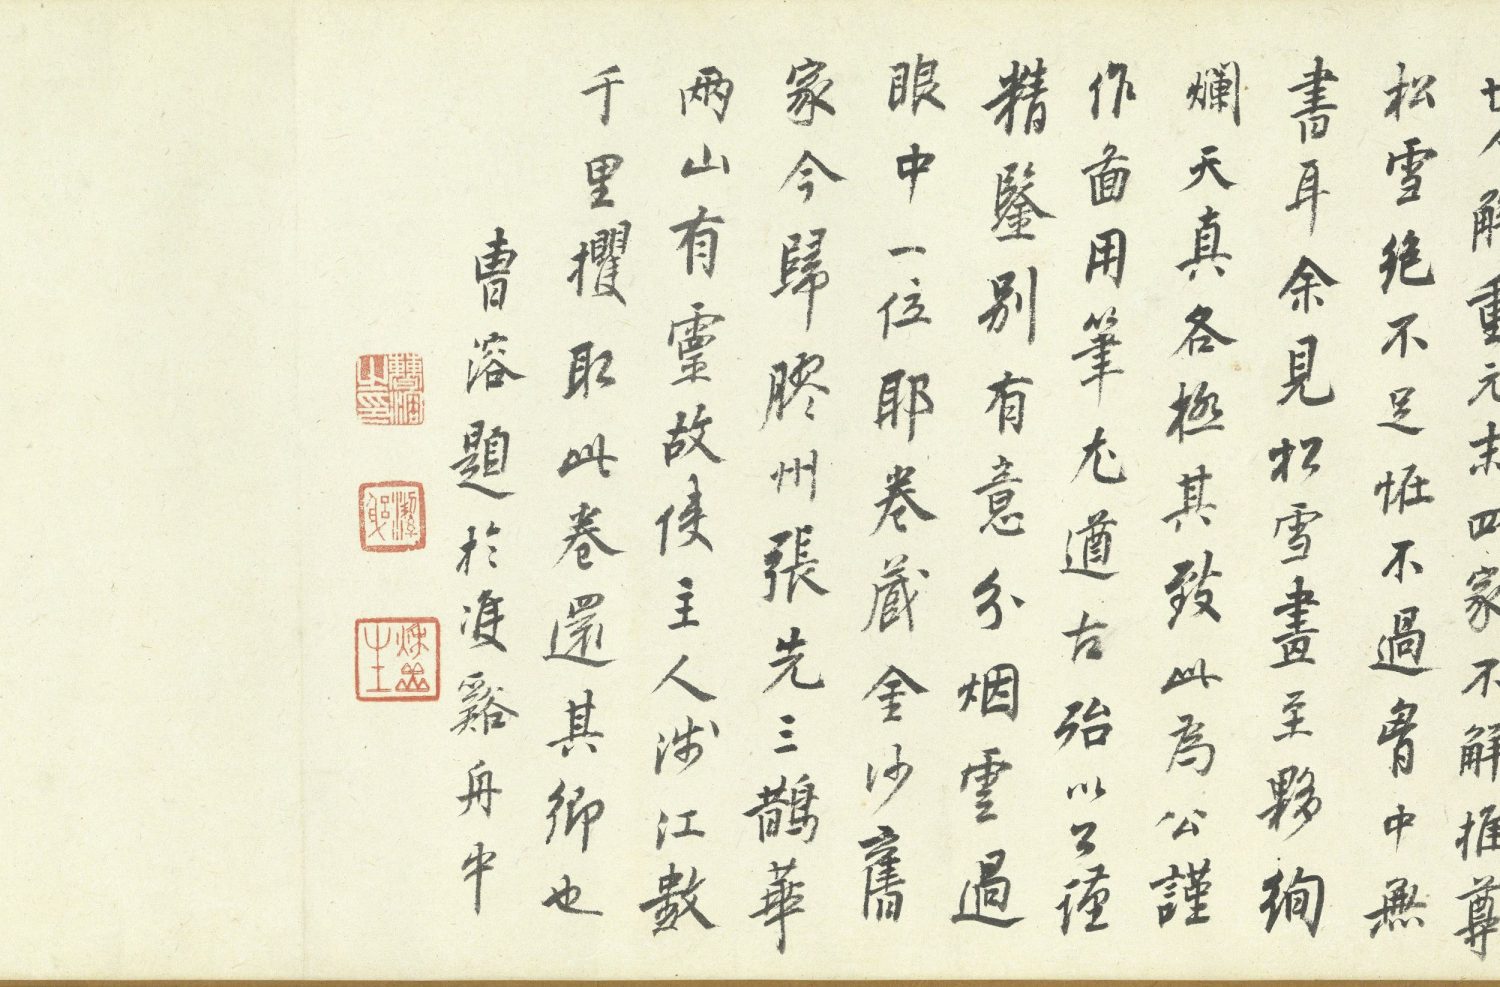 世人解重元末四家不解推尊
松雪絶不足恠不過胷中無
書耳余見松雪畫至夥絢
爛天真各極其致此為公謹
作畵用筆尤遒古殆以公謹
精鑒別有意分烟雲過
眼中一位耶卷藏金沙舊
家今歸膠州張先三鵲華
兩山有靈故使主人涉江數
千里攫取此卷還其鄉也
曹溶題於渡谿舟中
曹溶之印
潔躬